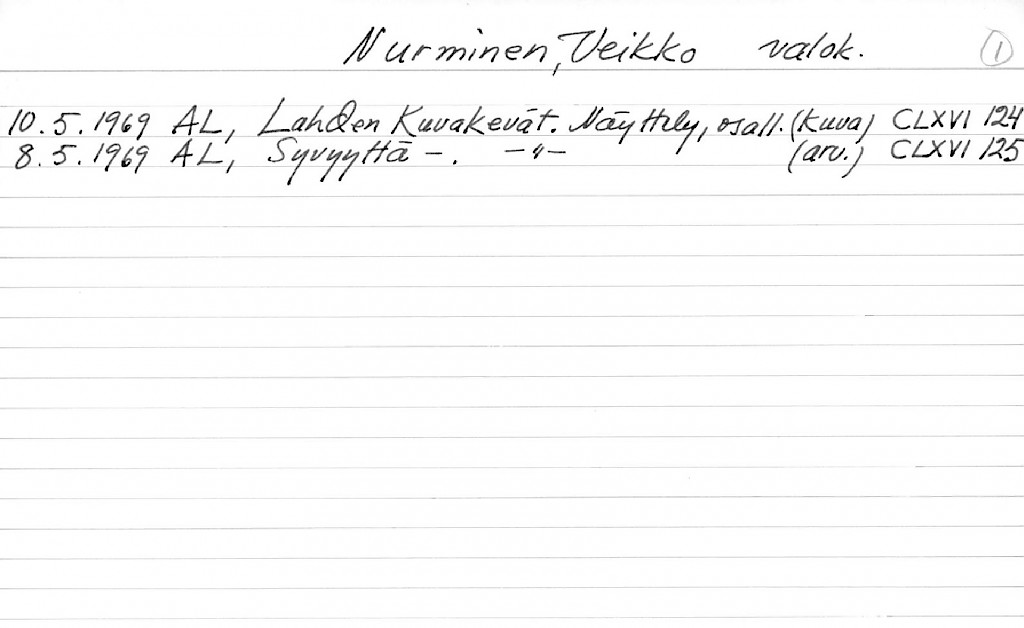 Nurminen, Veikko valok. 1
10.5.1969 AL, Lahden Kuvakevät. Näyttely, osall. (kuva) CLXVI 124
8.5.1969 AL, Syvyyttä -. -"- (arv.) CLXVI 125